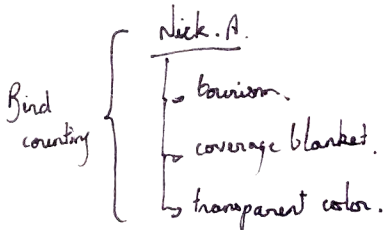 Nick. A.
Bird
counting
tourism.
coverage blanket.
transparent color.